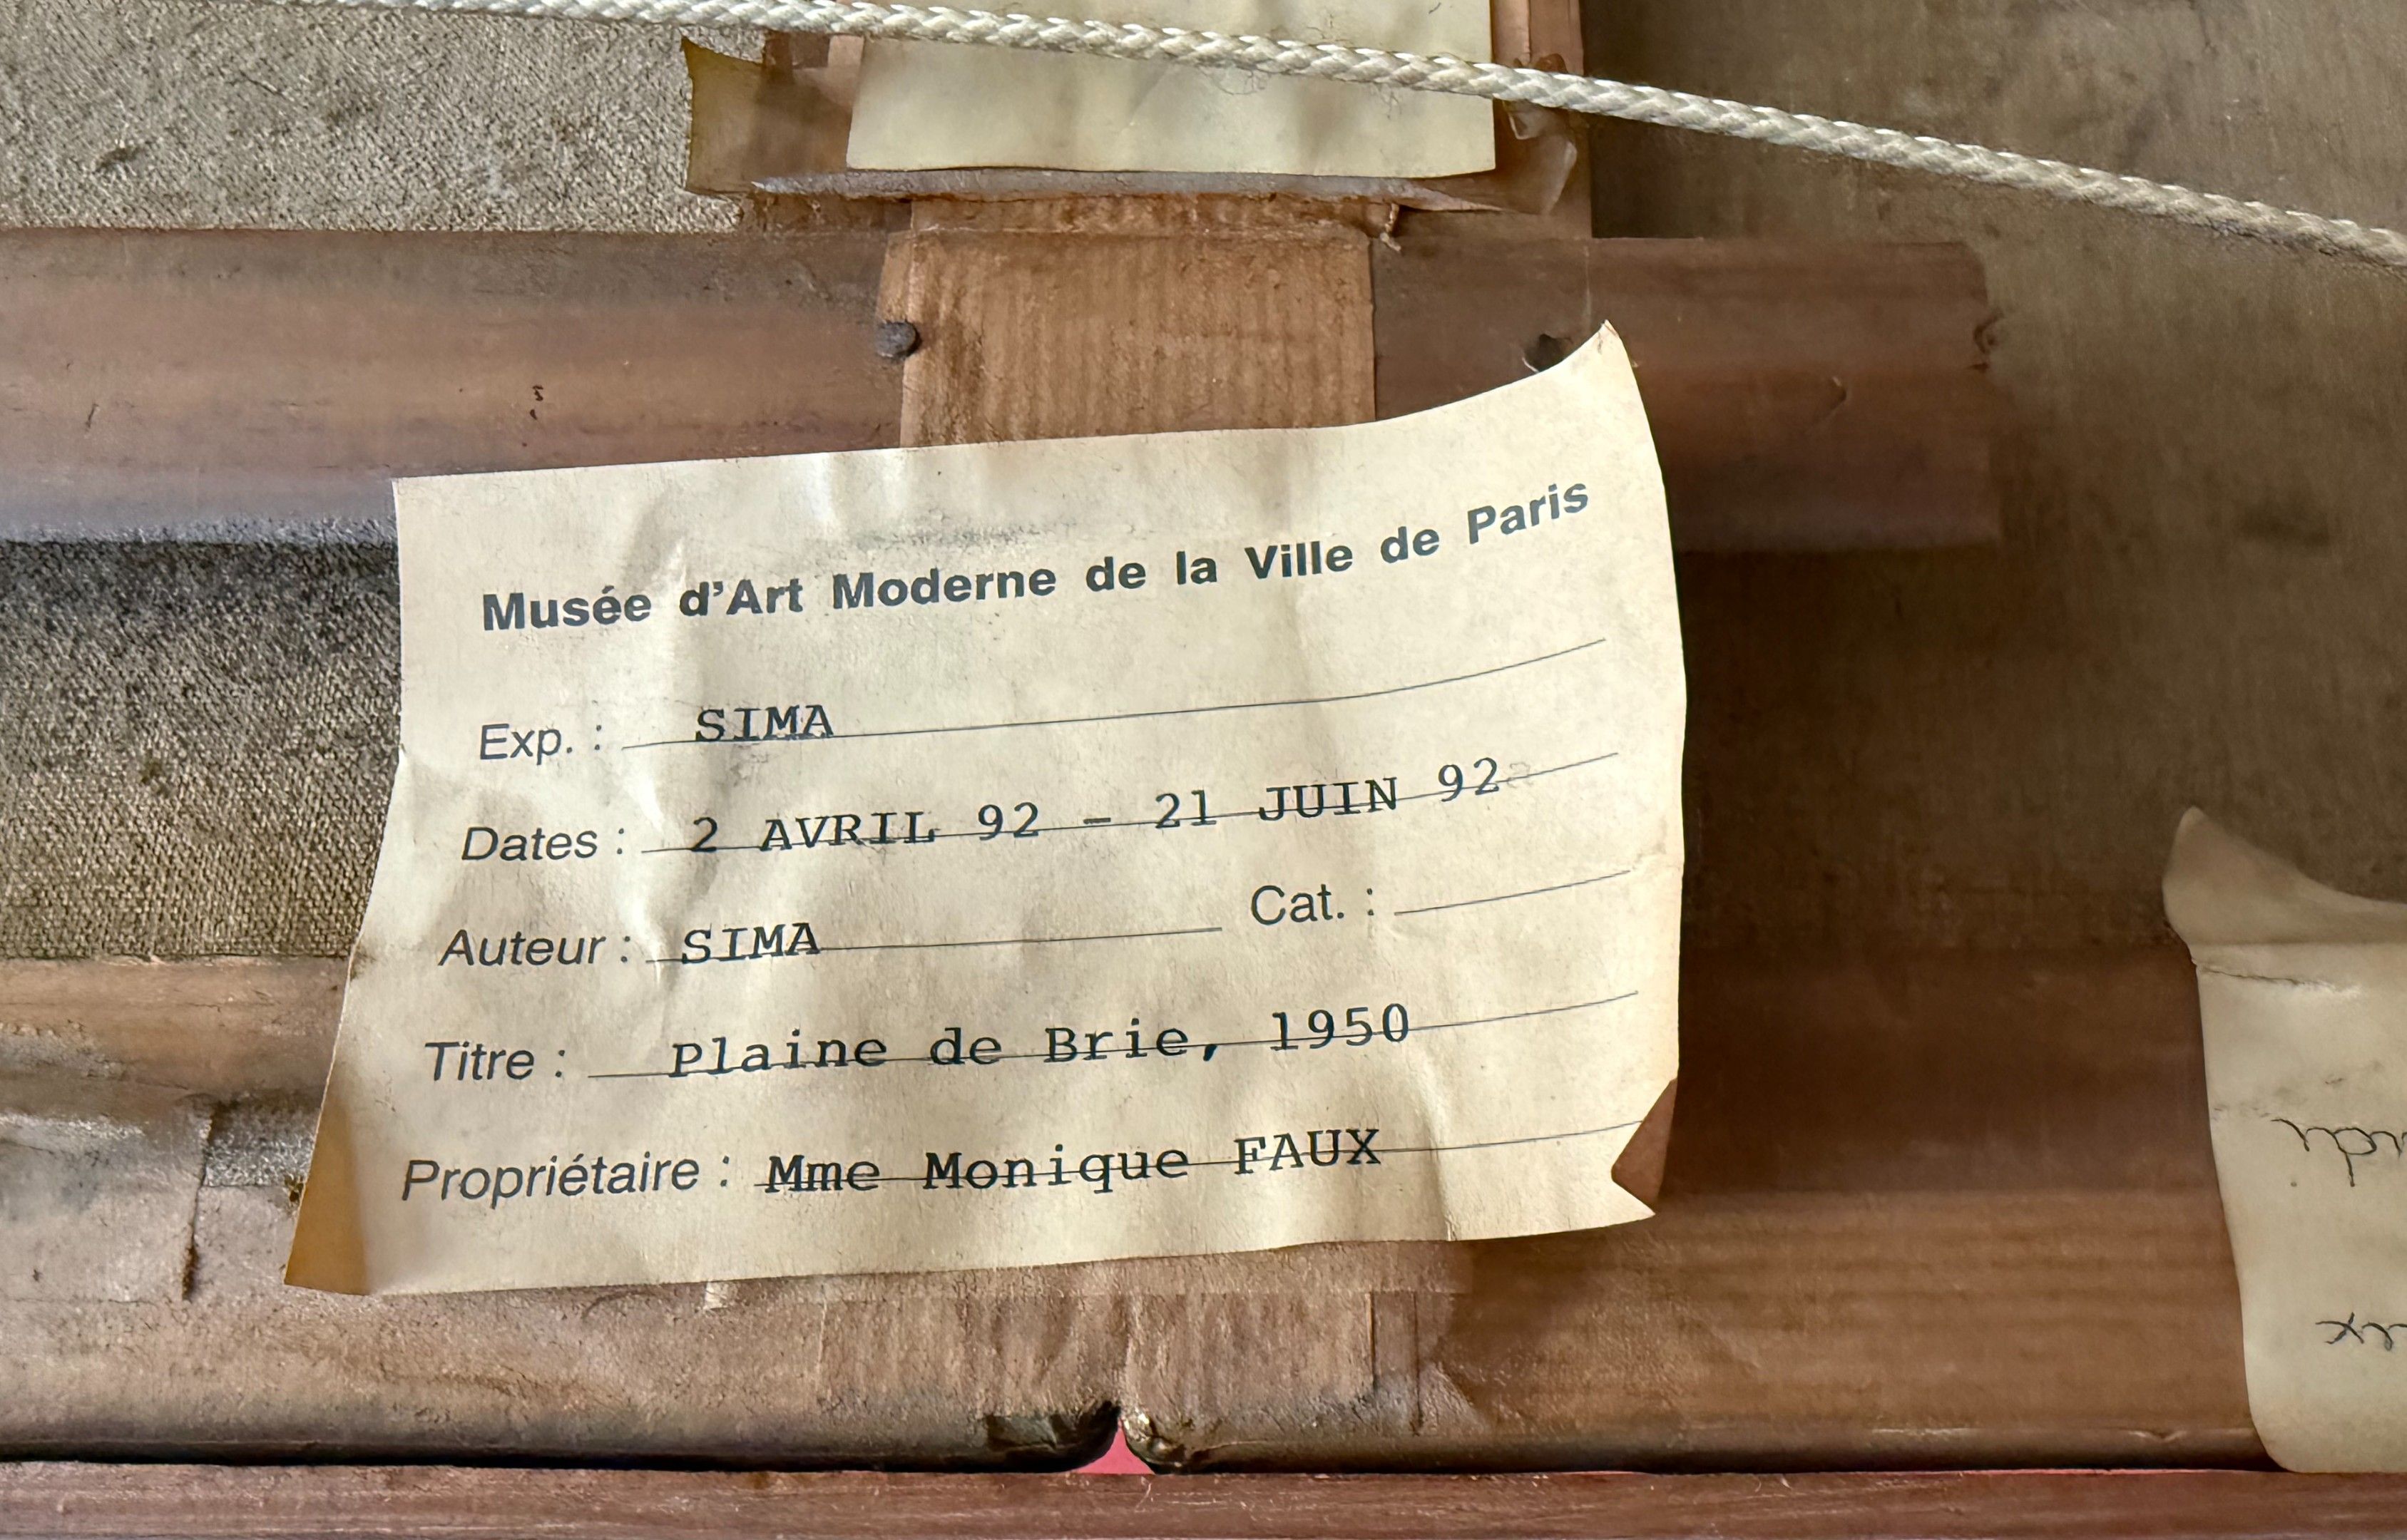 Musée d'Art Moderne de la Ville de Paris
Exp. : SIMA
Dates : 2 AVRIL 92 - 21 JUIN 92
Auteur : SIMA Cat. :
Titre : Plaine de Brie, 1950
Propriétaire : Mme Monique FAUX